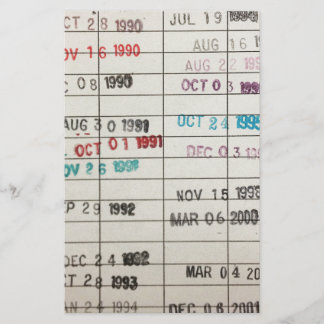 OCT 28 1990
NOV 16 1990
DEC 08 1990
AUG 30 1991
OCT 01 1991
NOV 26 1991
SEP 29 1992
DEC 24 1992
OCT 28 1993
JAN 24 1994
JUL 19
AUG 16
AUG 22
OCT 03
OCT 24 1995
DEC 03
NOV 15 1998
MAR 06 2000
MAR 04 20
DEC 06 2001